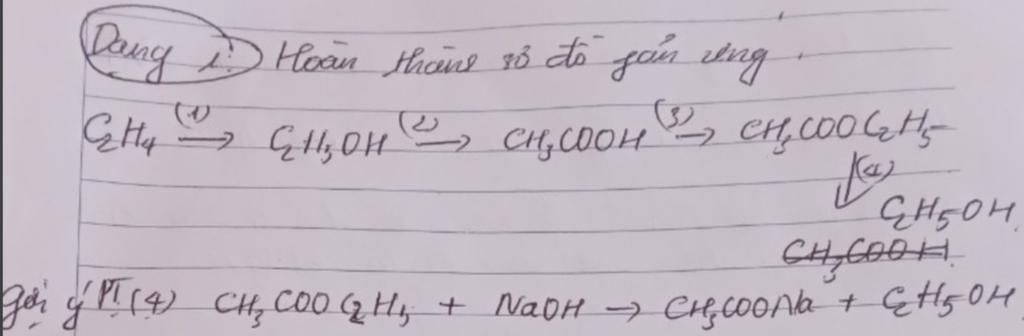 Dạng 1: Hoàn thành sơ đồ phản ứng.
C2H4 (1)→ C2H5OH (2)→ CH3COOH (3)→ CH3COOC2H5
(4)
C2H5OH
CH3COOH
Gợi ý PT (4) CH3COOC2H5 + NaOH → CH3COONa + C2H5OH